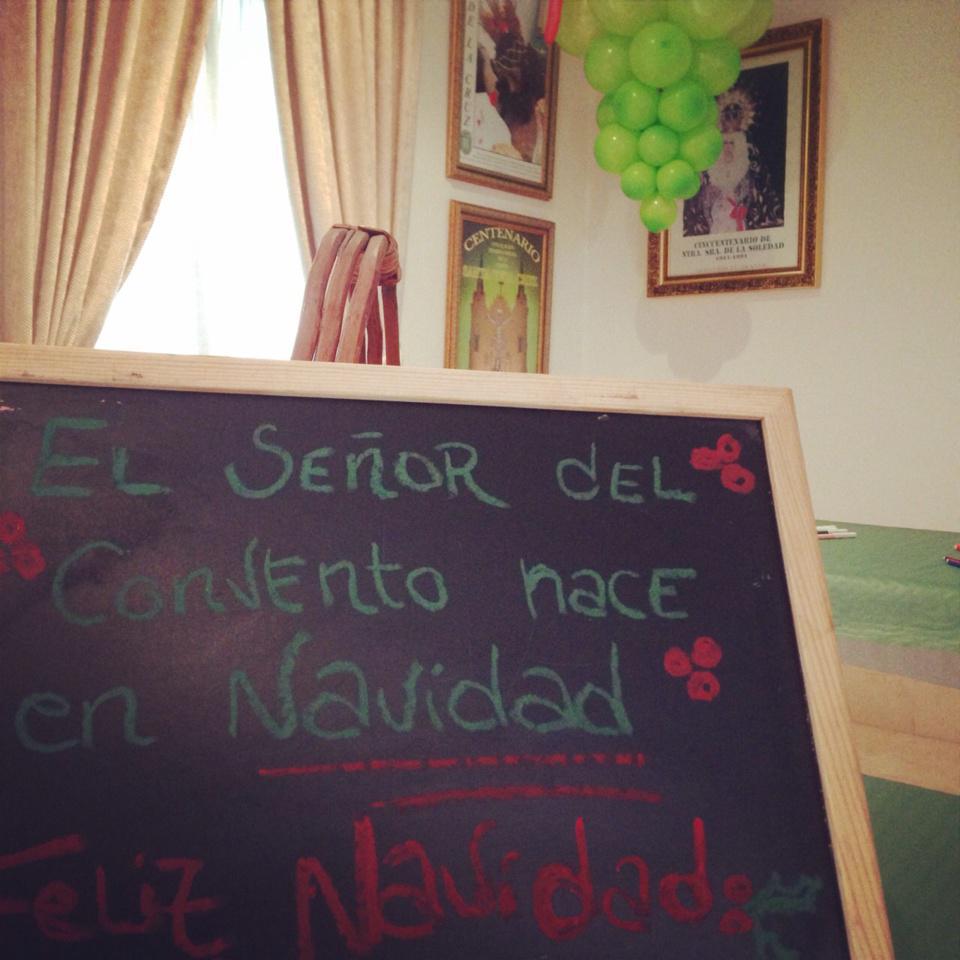 DE LA CRUZ
CENTENARIO
CINCUENTENARIO DE
NTRA. SRA. DE LA SOLEDAD
EL SEÑOR DEL
CONVENTO NACE
en NAVIDAD
FELIZ NAVIDAD